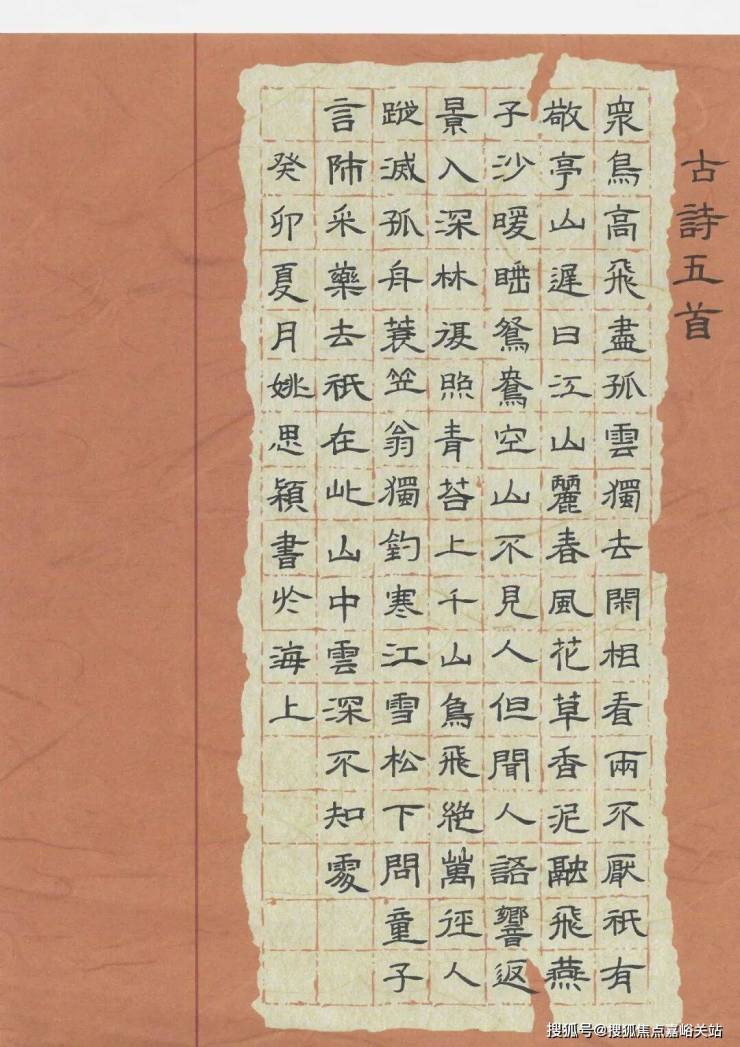 古詩五首
衆鳥高飛盡孤雲獨去閑相看兩不厭祇有
敬亭山遲日江山麗春風花草香泥融飛燕
子沙暖睡鴛鴦空山不見人但聞人語響返
景入深林復照青苔上千山鳥飛絕萬徑人
蹤滅孤舟蓑笠翁獨釣寒江雪松下問童子
言師采藥去祇在此山中雲深不知處
癸卯夏月姚思穎書於海上
搜狐号@搜狐焦点嘉峪关站